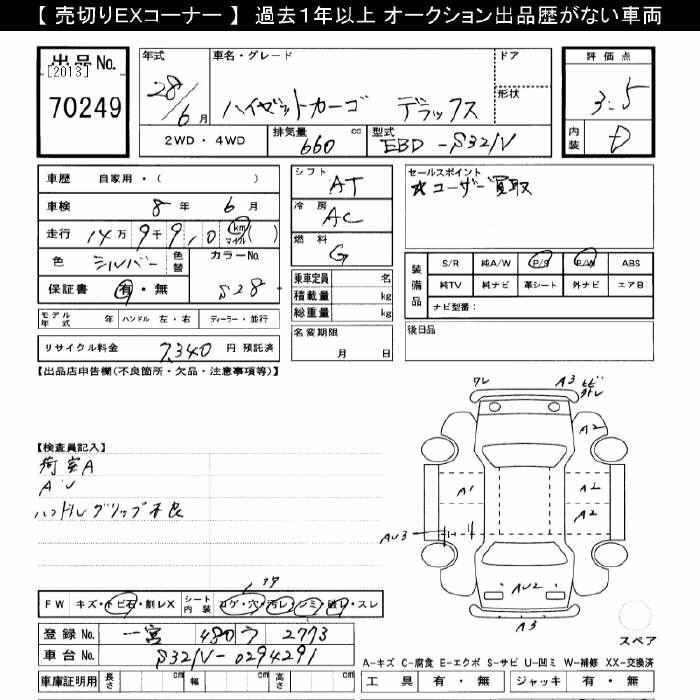 【 売切りEXコーナー 】 過去1年以上 オークション出品歴がない車両
出品 No.
[2013]
70249
年式
28/6 月
車名・グレード
ハイゼットカーゴ デラックス
ドア
形状
2WD・4WD
排気量
660 cc
型式
EBD-S321V
評価点
3.5
内装
D
車歴 自家用・( )
車検 8 年 6 月
走行 14 万 9 千 9,0 km マイル ( )
色 シルバー 色替
カラーNo.
S28
保証書 有・無
モデル年式 年 ハンドル 左・右 ディーラー・並行
リサイクル料金 7,340 円 預託済
シフト AT
冷房 AC
燃料 G
乗車定員 名
積載量 kg
総重量 kg
名変期限
月 日
セールスポイント
☆ユーザー買取
装備品
S/R 純A/W P/S P/W ABS
純TV 純ナビ 革シート 外ナビ エアB
ナビ型番:
後日品
【出品店申告欄(不良箇所・欠品・注意事項等)】
【検査員記入】
荷室A
AU
ハンドルグリップ不良
ワレ
A3
ヒビ
A2
A1
A2
A2
AU3
AU2
A3
スペア
FW キズ・トビ石・割レX シート内装 コゲ・穴・汚レ・シミ・破レ・スレ
登録 No. 一宮 480 ラ 2773
車台 No. S321V-0294291
車庫証明用 長さ cm 幅 cm 高さ cm
A-キズ C-腐食 E-エクボ S-サビ U-凹ミ W-補修 XX-交換済
工具 有・無 ジャッキ 有・無